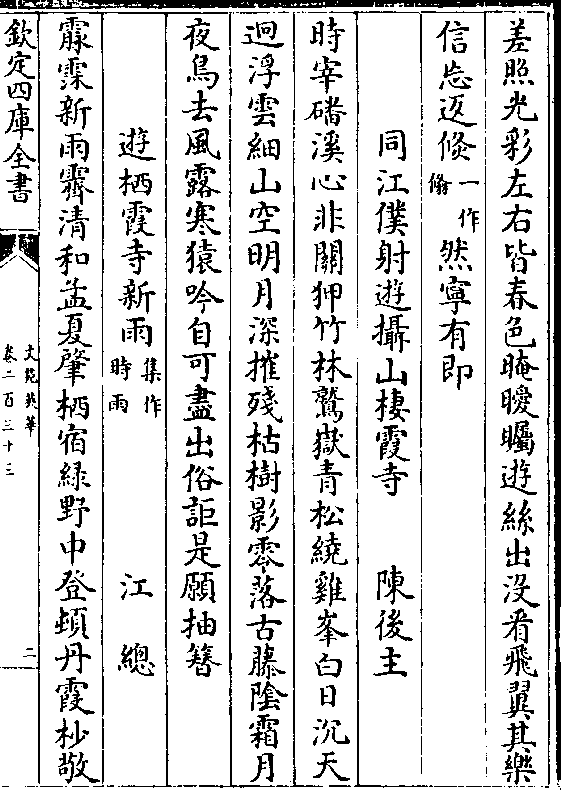 差照光彩左右皆春色晻曖矚遊絲出没看飛翼其樂
信忘返倐一作
翛然寧有即
同江僕射遊攝山棲霞寺 陳後主
時宰磻溪心非關狎竹林鷲嶽青松繞雞峯白日沉天
迥浮雲細山空明月深摧殘枯樹影零落古藤陰霜月
夜烏去風露寒猿吟自可盡出俗詎是願抽簪
遊栖霞寺新雨集作
時雨 江總
霡霂新雨霽清和孟夏肇栖宿緑野中登頓丹霞杪敬
欽定四庫全書
文苑英華
卷二百三十三
二